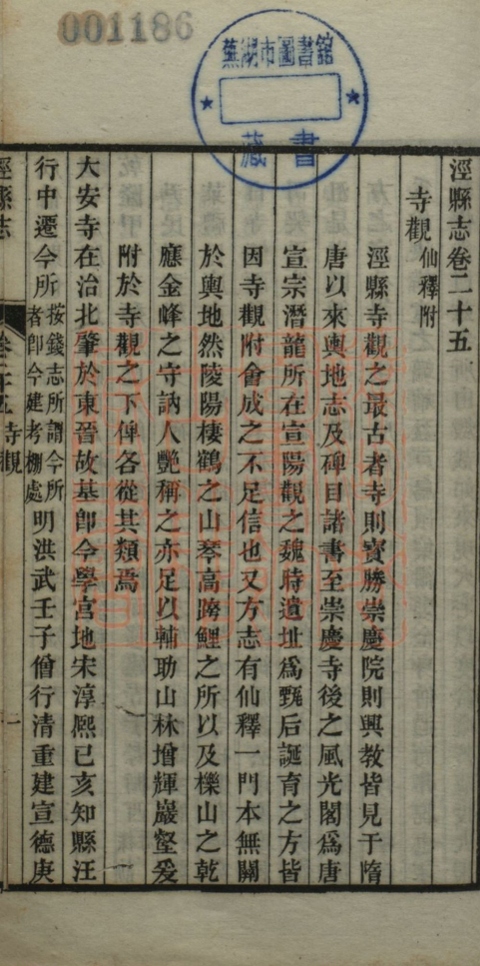 001186
蕪湖市圖書館
藏書
涇縣志卷二十五
寺觀仙釋附
涇縣寺觀之最古者寺則寶勝崇慶院則興教皆見于隋
唐以來輿地志及碑目諸書至崇慶寺後之風光閣爲唐
宣宗潛龍所在宣陽觀之魏時遺址爲甄后誕育之方皆
因寺觀附會成之不足信也又方志有仙釋一門本無關
於輿地然陵陽棲鶴之山琴高跨鯉之所以及櫟山之乾
應金峰之守訥人艷稱之亦足以輔助山林增輝巖壑爰
附於寺觀之下俾各從其類焉
大安寺在治北肇於東晉故基卽今學宮地宋淳熙己亥知縣汪
行中遷今所按錢志所謂今所者卽今建考棚處明洪武壬子僧行清重建宣德庚
涇縣志
卷二十五
寺觀
一